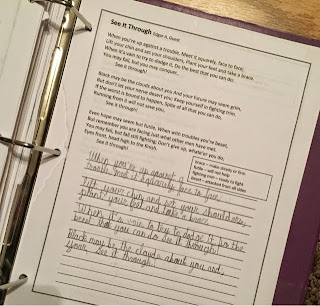 See It Through Edgar A. Guest
When you're up against a trouble, Meet it squarely, face to face;
Lift your chin and set your shoulders, Plant your feet and take a brace.
When it's vain to try to dodge it, Do the best that you can do;
You may fail, but you may conquer,
See it through!
Black may be the clouds about you And your future may seem grim,
But don't let your nerve desert you; Keep yourself in fighting trim.
If the worst is bound to happen, Spite of all that you can do,
Running from it will not save you,
See it through!
Even hope may seem but futile, When with troubles you're beset,
But remember you are facing Just what other men have met.
You may fail, but fall still fighting; Don't give up, whate'er you do;
Eyes front, head high to the finish.
See it through!
brace – make steady or firm
futile – will not help
fighting trim – ready to fight
beset – attacked from all sides
When you're up against a
trouble, meet it squarely face to face,
Lift your chin and set your shoulders,
plant your feet and take a brace
When it's vain to try to dodge it, Do the
best that you can do See it through!
Black may be, the clouds about you and,
your See it through!